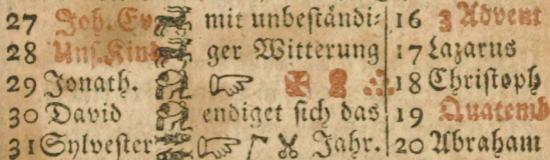 27 Joh. Ev mit unbeständi= 16 3 Advent
28 Uns. Kind ger Witterung 17 Lazarus
29 Jonath. 18 Christoph
30 David endiget sich das 19 Quatemb
31 Sylvester Jahr. 20 Abraham